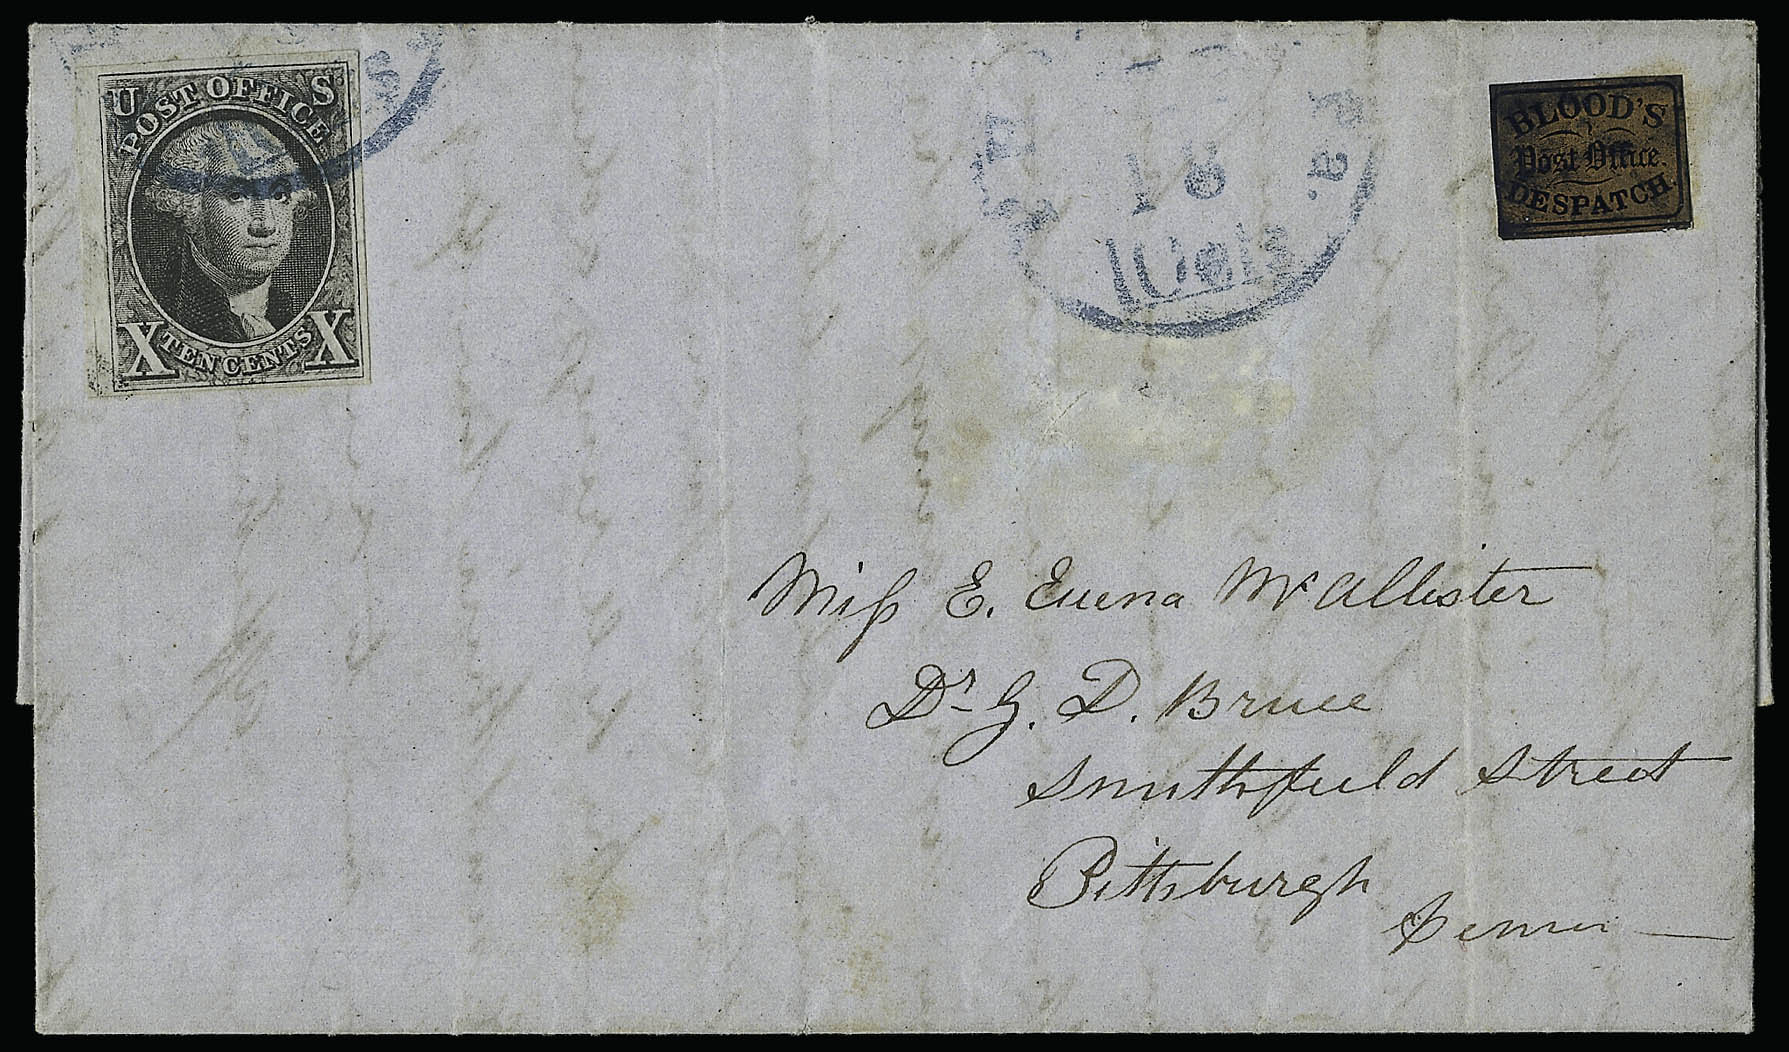 U S
POST OFFICE
X TEN CENTS X
18
10cts
Pa.
BLOOD'S
Post Office
DESPATCH.
Miſs E. Euena McAllister
Dr G. D. Bruce
Smithfield Street
Pittsburgh
Penna